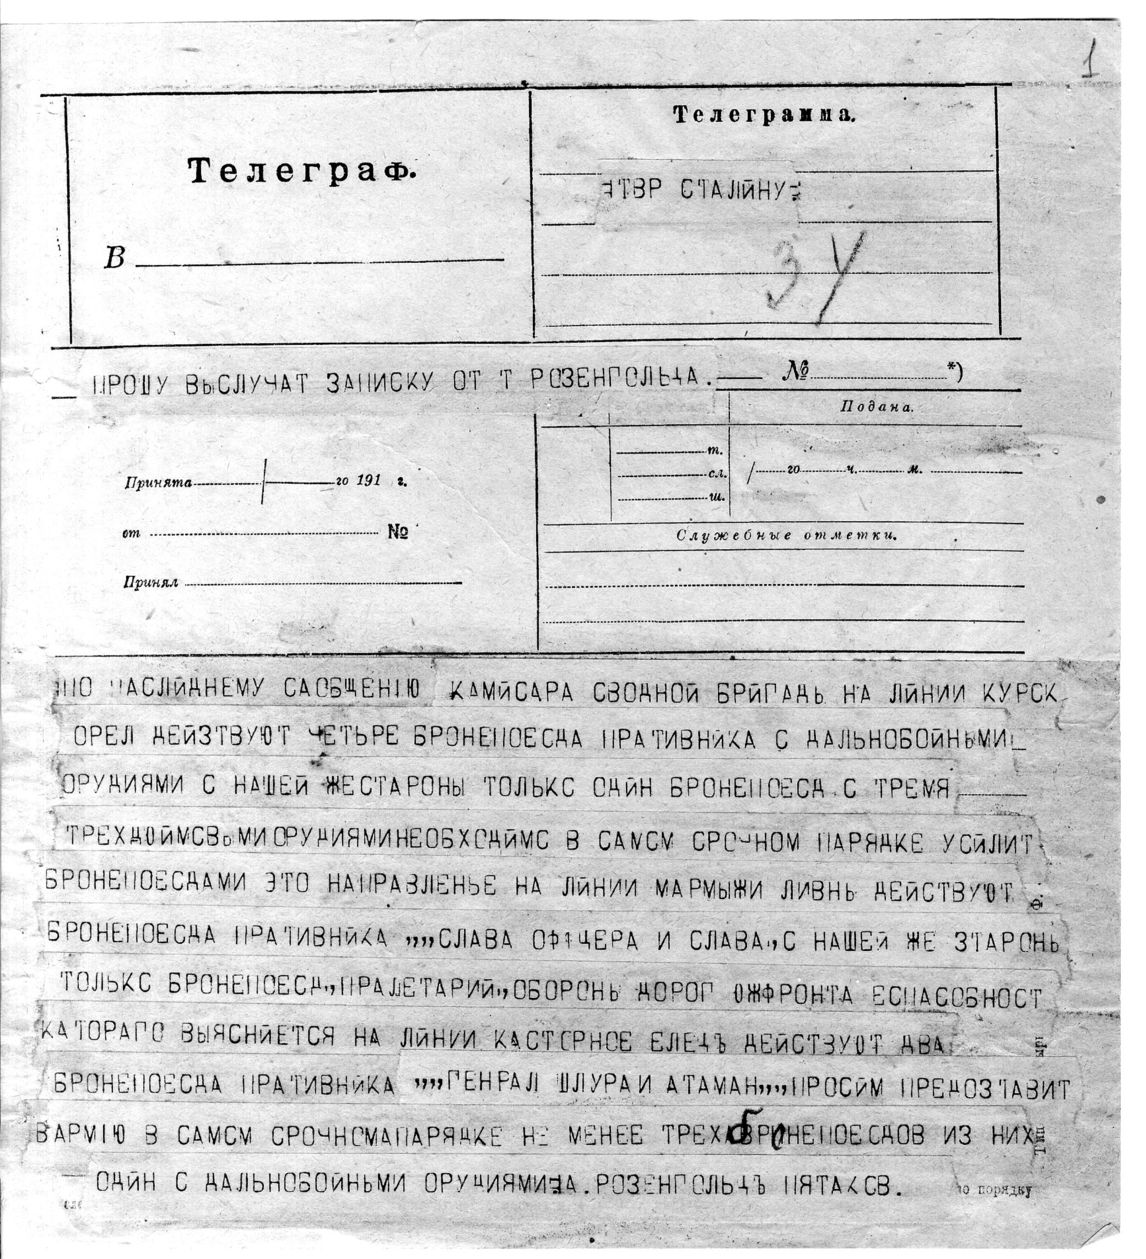 1
Телеграф.
Телеграмма.
В
=ТВР СТАЛІЙНУ=
ЗУ
ПРОШУ ВЫСЛУЧАТ ЗАПИСКУ ОТ Т РОЗЕНГОЛЬЦА. № *)
Подана.
т.
сл. го ч. м.
ш.
Принята го 191 г.
от №
Служебные отметки.
Принял
ПО ПАСЛЙДНЕМУ САОБЩЕНІЮ КАМЙСАРА СВОДНОЙ БРЙГАДЬ НА ЛЙНИИ КУРСК
ОРЕЛ ДЕЙЗТВУЮТ ЧЕТЬРЕ БРОНЕПОЕСДА ПРАТИВНЙКА С ДАЛЬНОБОЙНЬМИ
ОРУДИЯМИ С НАШЕЙ ЖЕСТАРОНЫ ТОЛЬКС ОДЙН БРОНЕПОЕСД С ТРЕМЯ
ТРЕХДЮЙМСВЬМИ ОРУДИЯМИНЕОБХСДЙМС В САМСМ СРОЧНОМ ПАРЯДКЕ УСЙЛИТ
БРОНЕПОЕСДАМИ ЭТО НАПРАВЛЕНЬЕ НА ЛЙНИИ МАРМЫЖИ ЛИВНЬ ДЕЙСТВУЮТ
БРОНЕПОЕСДА ПРАТИВНЙКА „„СЛАВА ОФІЦЕРА И СЛАВА„С НАШЕЙ ЖЕ ЗТАРОНЬ
ТОЛЬКС БРОНЕПОЕСД„ПРАЛЕТАРИЙ„ОБОРОНЬ ДОРОГ ЮЖФРОНТА БСПАСОБНОСТ
КАТОРАГО ВЫЯСНЙЕТСЯ НА ЛЙНИИ КАСТСРНОЕ ЕЛЕЦЪ ДЕЙСТВУЮТ ДВА
БРОНЕПОЕСДА ПРАТИВНЙКА „„ГЕНРАЛ ШПУРА И АТАМАН„„ПРОСЙМ ПРЕДОЗТАВИТ
ВАРМІЮ В САМСМ СРОЧНСМАПАРЯДКЕ НЕ МЕНЕЕ ТРЕХ БРОНЕПОЕСДОВ ИЗ НИХ
ОДЙН С ДАЛЬНОБОЙНЬМИ ОРУДИЯМИ РОЗЕНГОЛЬЦЪ ПЯТАКСВ.
по порядку